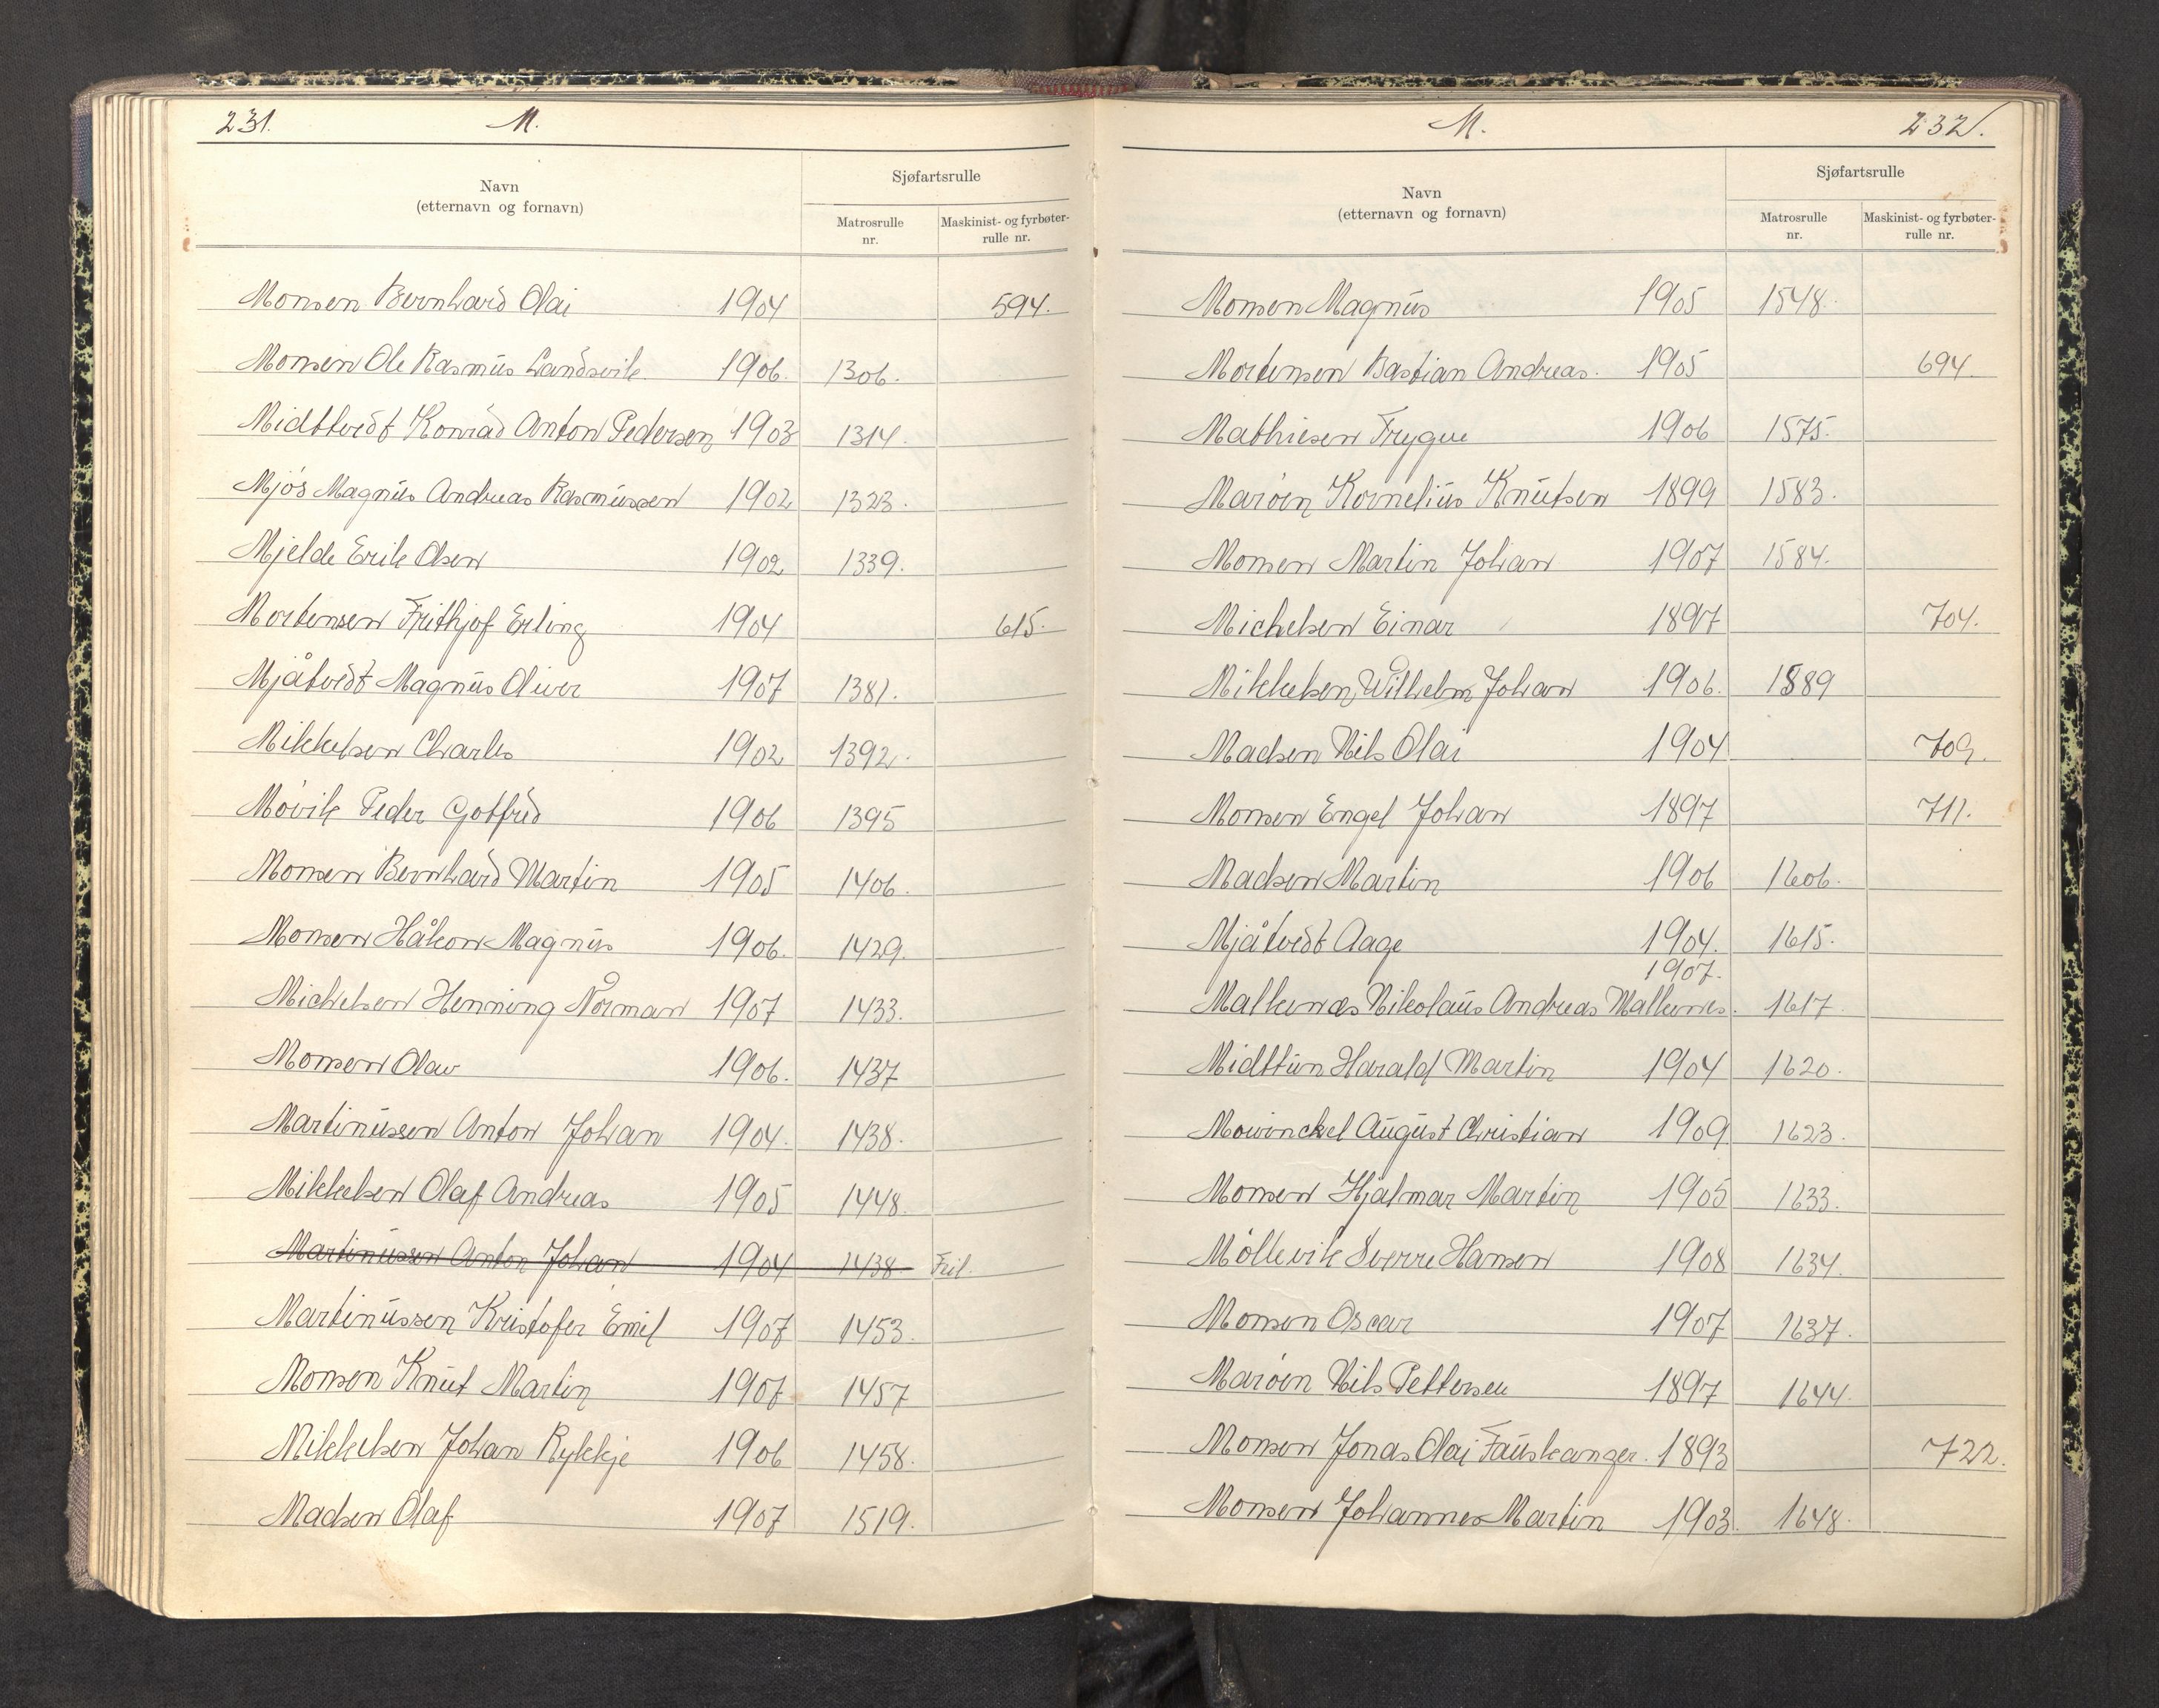 231. M.
Navn
(etternavn og fornavn)
Sjøfartsrulle
Matrosrulle
nr.
Maskinist- og fyrbøter-
rulle nr.
Monsen Bernhard Olai 1904 594.
Monsen Ole Rasmus Landsvik 1906. 1306.
Midttvedt Konrad Anton Pedersen 1903 1314.
Mjøs Magnus Andreas Rasmussen 1902 1323.
Mjelde Erik Olsen 1902 1339.
Mortensen Frithjof Erling 1904 615.
Mjåtvedt Magnus Oliver 1907 1381.
Mikkelsen Charles 1902 1392.
Møvik Peder Gotfred 1906 1395
Monsen Bernhard Martin 1905 1406.
Monsen Håkon Magnus 1906. 1429.
Michelsen Henning Norman 1907 1433.
Monsen Olav 1906. 1437
Martinussen Anton Johan 1904. 1438.
Mikkelsen Olaf Andreas 1905 1448.
Martinussen Anton Johan 1904 1438. Feil.
Martinussen Kristofer Emil 1907 1453.
Monsen Knut Martin 1907 1457
Mikkelsen Johan Rykkje 1906 1458.
Madsen Olaf 1907 1519.
M. 232.
Navn
(etternavn og fornavn)
Sjøfartsrulle
Matrosrulle
nr.
Maskinist- og fyrbøter-
rulle nr.
Monsen Magnus 1905 1548.
Mortensen Bastian Andreas. 1905 694.
Mathiesen Trygve 1906 1575.
Marøen Kornelius Knutsen 1899 1583.
Monsen Martin Johan 1907 1584.
Michelsen Einar 1897 704.
Mikkelsen, Wilhelm Johan 1906. 1589
Madsen Nils Olai 1904 709.
Monsen Engel Johan 1897 711.
Madsen Martin 1906 1606.
Mjåtvedt Aage 1904. 1615.
1907.
Malkenæs Nikolaus Andreas Malkenes. 1617
Midttun Harald Martin 1904 1620.
Mowinckel August Christian 1909 1623.
Monsen Hjalmar Martin 1905 1633.
Møllevik Sverre Hansen 1908 1634.
Monsen Oscar 1907 1637.
Marøen Nils Pettersen 1897 1644.
Monsen Jonas Olai Fauskanger. 1893 722.
Monsen Johannes Martin 1903. 1648.